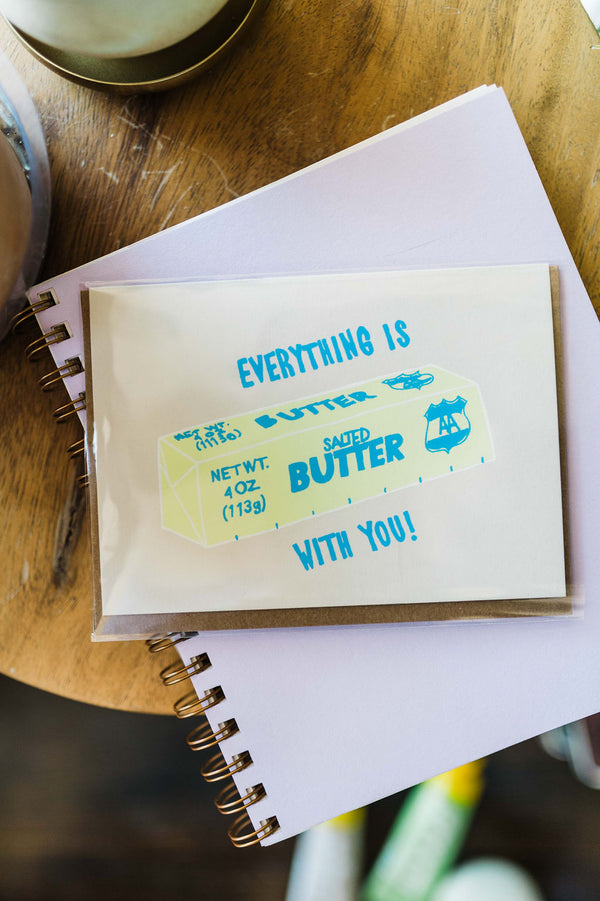 EVERYTHING IS
NET WT.
4 OZ
(113g)
BUTTER
AA
NET WT.
4 OZ
(113g)
SALTED
BUTTER
AA
WITH YOU!